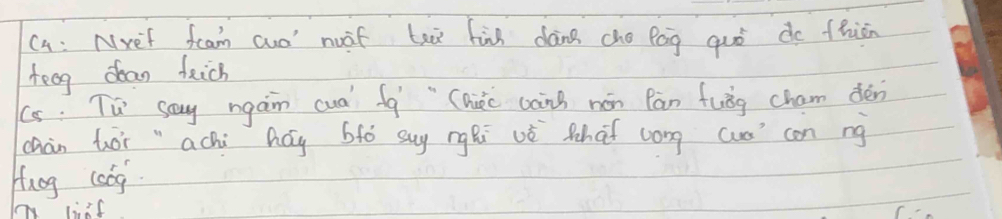 C4: Nxét tcảm của nvật trữ tình dành cho lòg quê đc thiên
trog đoạn trích
C5: Từ suy ngẫm của tg "Chiếc bánh nón lần tưởg chạm đến
chân trời" a chị hãy btỏ suy nghĩ về khát vọng của con ng
trog csốg.